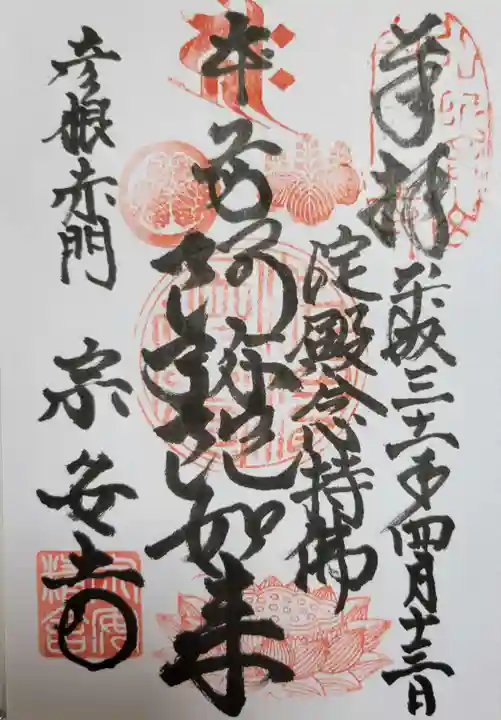 奉拝
平成三十一年四月十三日
淀殿念持佛
本尊阿弥陀如来
彦根赤門
宗安寺